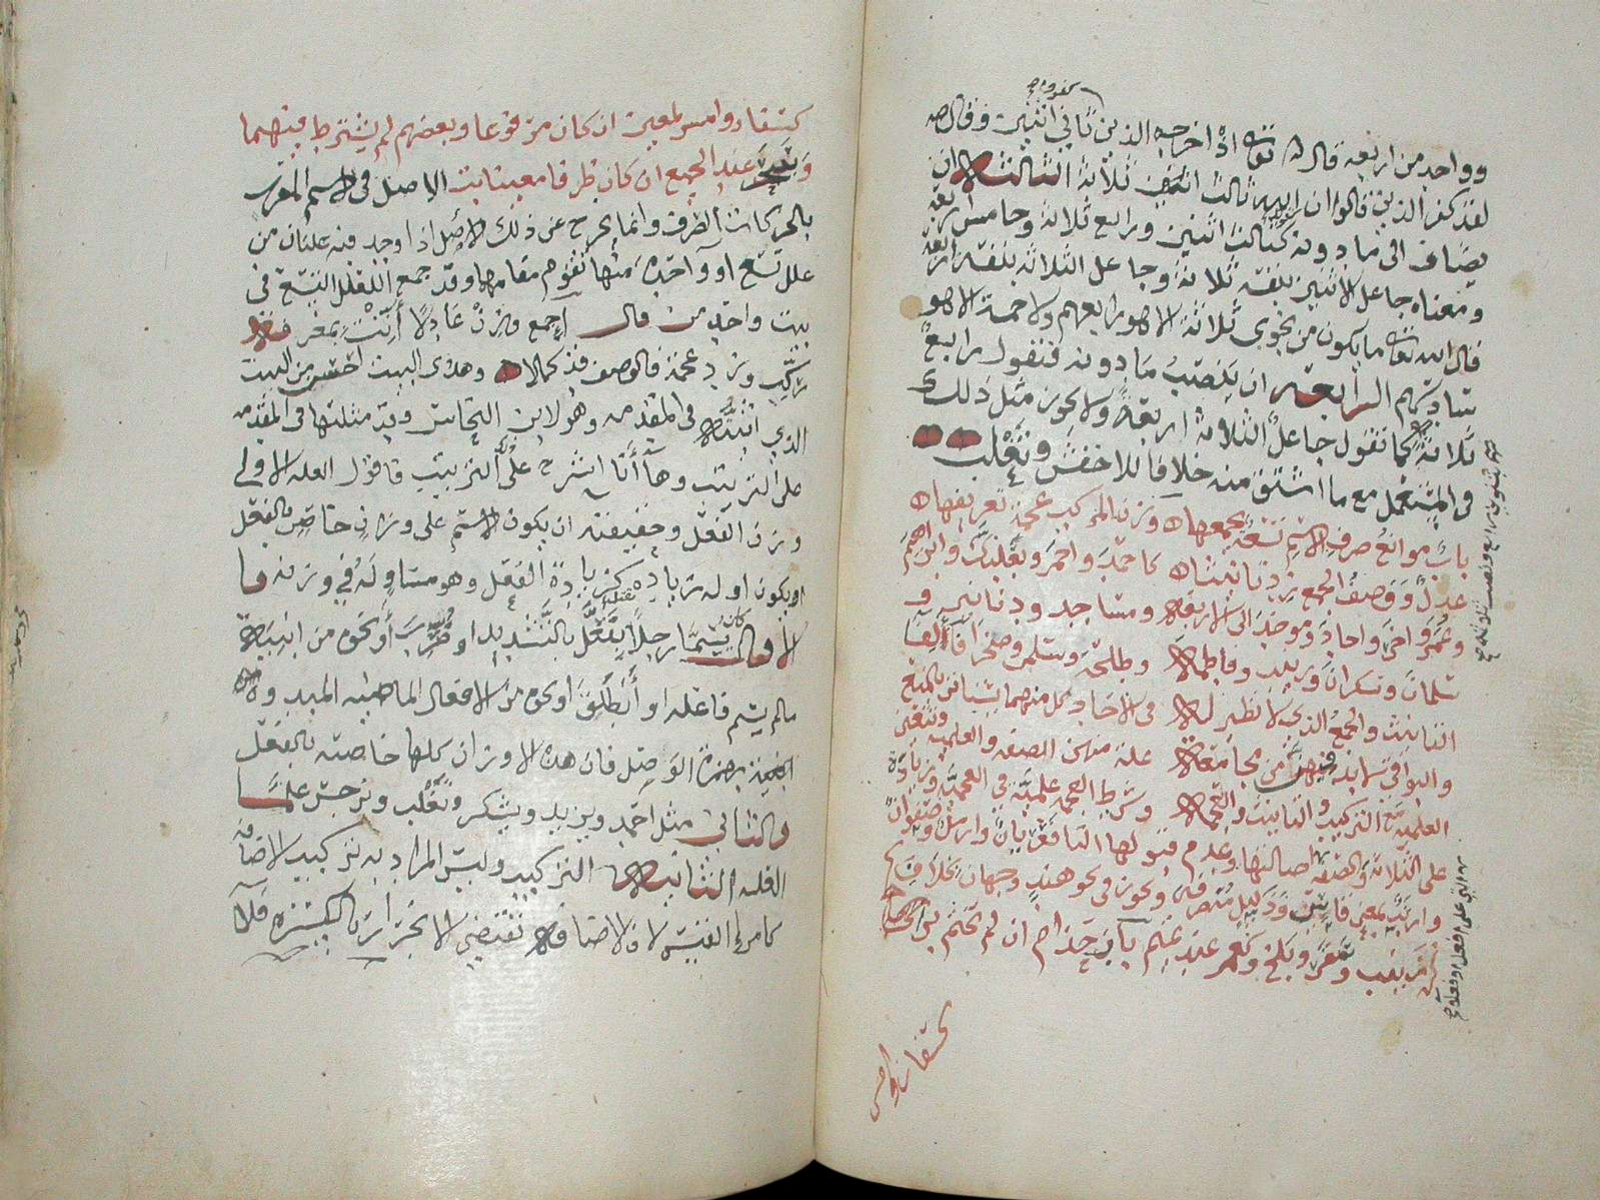 وواحد من اربعة قال الله تعالى اذ اخرجه الذين كفروا ثاني اثنين وقال
لقد كفر الذين قالوا ان الله ثالث ثلاثة الثالث ان
يضاف الى ما دونه كثالث اثنين ورابع ثلاثة وخامس اربعة
ومعناه جاعل الاثنين بنفسه ثلاثة وجاعل الثلاثة بنفسه اربعة
قال الله تعالى ما يكون من نجوى ثلاثة الا هو رابعهم ولا خمسة الا هو
سادسهم الرابع ان ينصب ما دونه فتقول رابع
ثلاثة كما تقول جاعل الثلاثة اربعة ولا يجوز مثل ذلك
في المستعمل مع ما اشتق منه خلافا للاخفش وثعلب
باب موانع صرف الاسم تسعة يجمعها وزن المركب عجمة تعريفها
عدل ووصف الجمع زد تانيثا كاحمد واحمر وبعلبك وابراهيم
وعمر واخر واحاد وموحد الى الاربعة ومساجد ودنانير و
سلمان وسكران وفاطمة وطلحة وسلمى وصحراء فالف
التانيث والجمع الذي لا نظير له في الآحاد كل منهما يستاثر بالمنع
والبواقي لا بد من مجامعة علة منهن الصفة والعلمية وتتعين
العلمية مع التركيب والتانيث والعجمة وشرط العجمة علمية في العجمية وزيادة
على الثلاثة والصفة اصالتها وعدم قبولها التاء فعريان وارمل وصفوان
وارنب بمعنى قاس وذليل منصرفة ويجوز في نحو هند وجهان بخلاف
زينب وسقر وبلخ وكعمر عند تميم باب حذام ان لم يختم براء
كسفار وامس لمعين ان كان مرفوعا وبعضهم لم يشترط فيهما
وسحر عند الجميع ان كان ظرفا معينا الاصل في الاسم المعرب
بالحركات الصرف وانما يخرج عن ذلك الاصل اذا وجد فيه علتان من
علل تسع او واحدة منها تقوم مقامهما وقد جمع العلل التسع في
بيت واحد من قال اجمع وزن عادلا انث بمعرفة
ركب وزد عجمة فالوصف قد كملا وهذا البيت احسن من البيت
الذي اثبته في المقدمة وهو لابن النحاس وقد مثلتها في المقدمة
على الترتيب وها انا اشرح على الترتيب فاقول العلة الاولى
وزن الفعل وحقيقته ان يكون الاسم على وزن خاص بالفعل
او يكون اوله زيادة كزيادة الفعل وهو مساو له في وزنه فا
لاول كان تسمي رجلا بقتل بالتشديد او ضرب او نحوه من ابنية
ما لم يسم فاعله او انطلق او نحوه من الافعال الماضية المبدوة
بهمزة الوصل فان هذه الاوزان كلها خاصة بالفعل
والثاني مثل احمد ويزيد ويشكر وتغلب ونرجس علما
العلة الثانية التركيب وليس المراد به تركيب الاضافة
كامرئ القيس لان الاضافة تقتضي الانجرار بالكسرة فلا